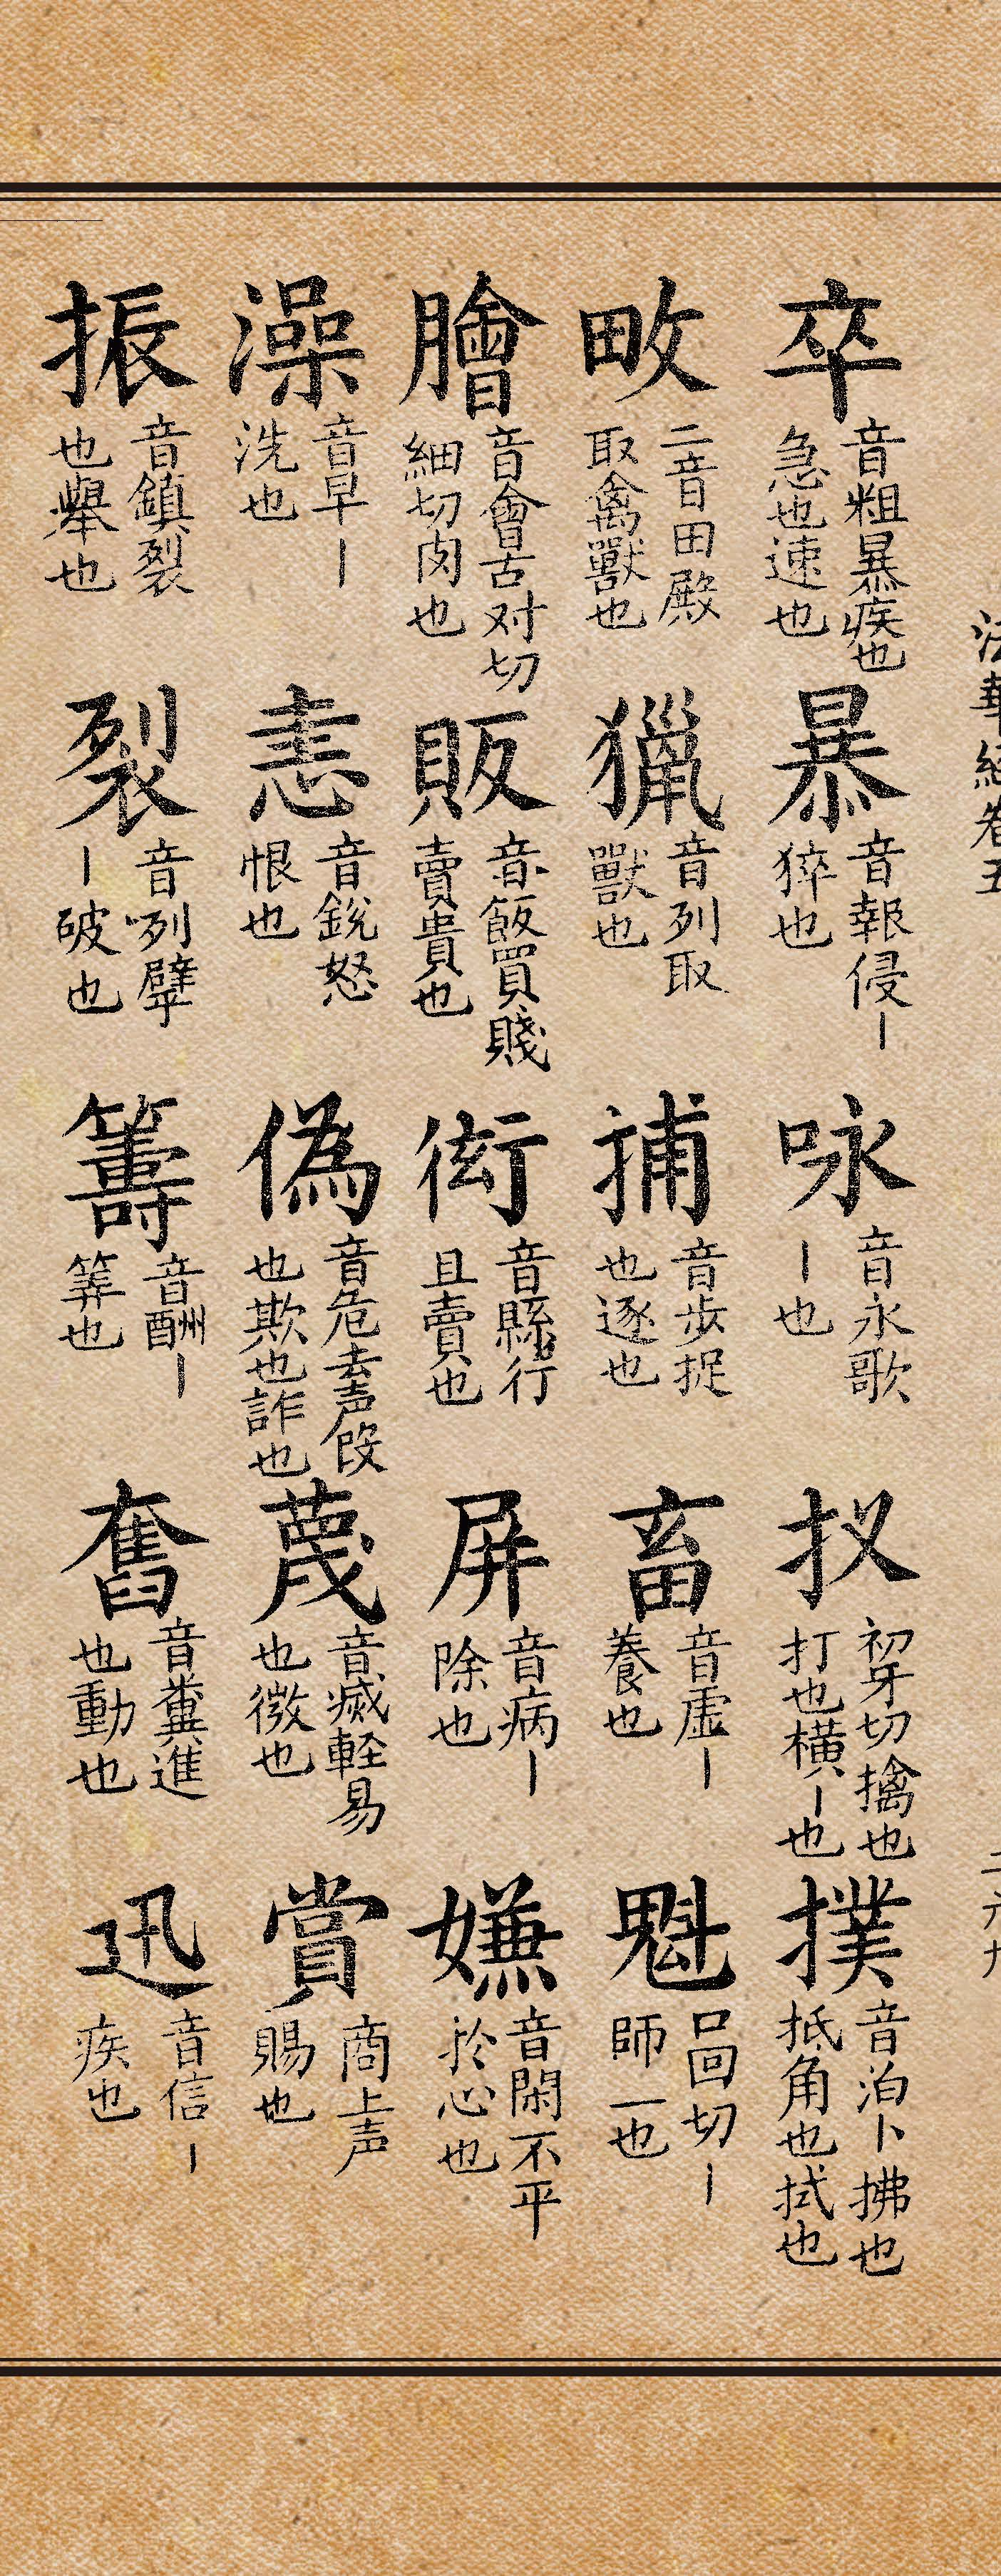 法華經卷五
二六九
卒 音粗暴疾也急也速也
暴 音報侵丨猝也
咏 音永歌丨也
扠 初牙切擒也打也橫丨也
撲 音泊卜拂也抵角也拭也
畋 二音田殿取禽獸也
獵 音列取獸也
捕 音步捉也逐也
畜 音虛丨養也
魁 口回切丨師一也
膾 音會古对切細切肉也
販 音飯買賤賣貴也
衒 音縣行且賣也
屏 音病丨除也
嫌 音閑不平於心也
澡 音早丨洗也
恚 音銳怒恨也
偽 音危去声假也欺也詐也
蔑 音滅輕易也微也
賞 商上声賜也
振 音鎮裂也舉也
裂 音咧擘丨破也
籌 音酬丨筭也
奮 音糞進也動也
迅 音信丨疾也